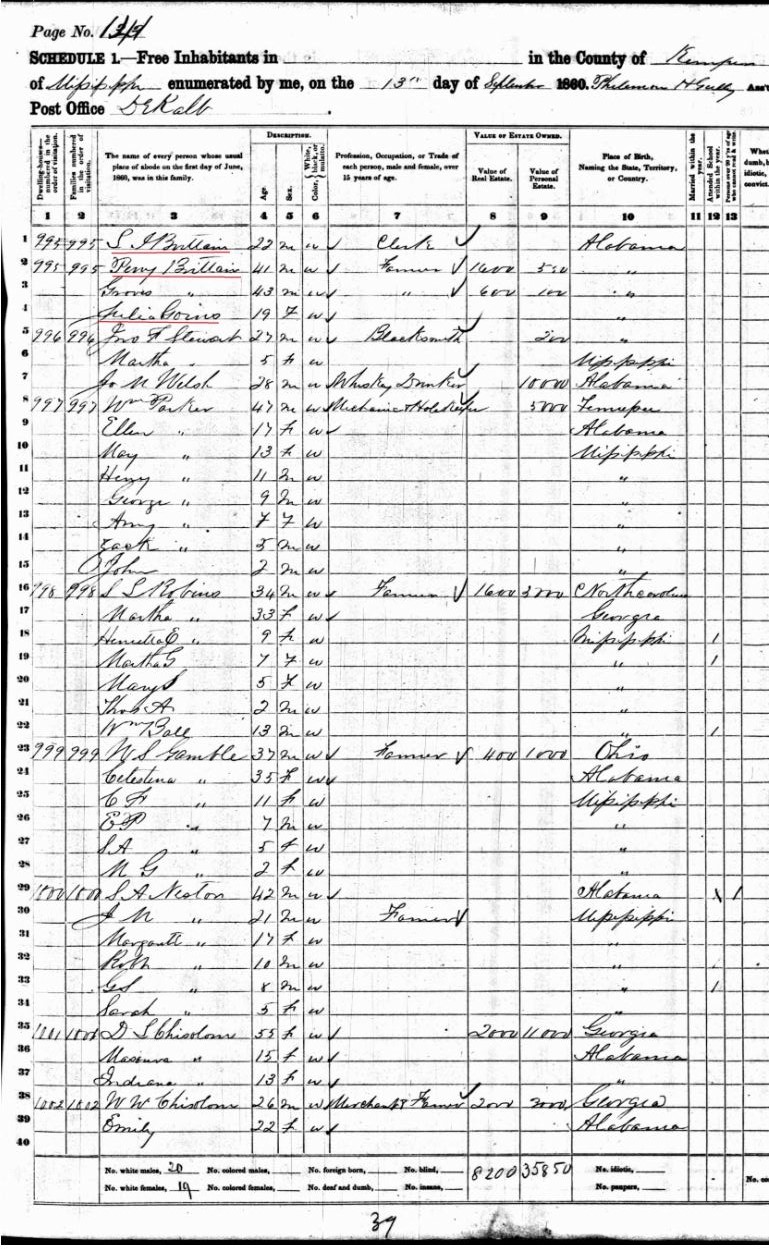 Page No. 129
SCHEDULE 1.—Free Inhabitants in in the County of Kemper
of Mississippi enumerated by me, on the 13th day of September 1860. Philemon H Gully Ass't
Post Office DeKalb
Dwelling-houses—numbered in the order of visitation.
Families numbered in the order of visitation.
The name of every person whose usual place of abode on the first day of June, 1860, was in this family.
DESCRIPTION.
Age.
Sex.
Color, White, black, or mulatto.
Profession, Occupation, or Trade of each person, male and female, over 15 years of age.
VALUE OF ESTATE OWNED.
Value of Real Estate.
Value of Personal Estate.
Place of Birth, Naming the State, Territory, or Country.
Married within the year.
Attended School within the year.
1 2 3 4 5 6 7 8 9 10 11 12 13
1 995 995 S I Brittain 22 m w Clerk Alabama
2 995 995 Perry Brittain 41 m w Farmer 1600 550 "
3 Groves " 43 m w " 600 100 "
4 Julia Goins 19 f w "
5 996 996 Jno F Stewart 27 m w Blacksmith 200 "
6 Martha " 5 f w Mississippi
7 Jo N Welsh 28 m w Whiskey Drinker 10000 Alabama
8 997 997 Wm Parker 47 m w Mechanic & Hotel Keeper 5000 Tennessee
9 Ellen " 17 f w Alabama
10 May " 13 f w Mississippi
11 Henry " 11 m w "
12 George " 9 m w "
13 Amy " 7 f w "
14 Zack " 5 m w "
15 John 2 m w "
16 998 998 S L Robins 34 m w Farmer 1600 3000 North Carolina
17 Martha " 33 f w Georgia
18 Henrietta E " 9 f w Mississippi 1
19 Martha G 7 f w " 1
20 Mary S 5 f w "
21 Thos A 2 m w "
22 Wm Ball 13 m w " 1
23 999 999 W S Gamble 37 m w Farmer 400 1000 Ohio
24 Celestina " 35 f w Alabama
25 C F " 11 f w Mississippi
26 E P " 7 m w "
27 S A " 5 f w "
28 M G " 2 f w "
29 1000 1000 S A Neston 42 m w Alabama 1
30 J N " 21 m w Farmer Mississippi
31 Margarett " 17 f w "
32 Roth " 10 m w "
33 G S " 8 m w " 1
34 Sarah " 5 f w "
35 1001 1001 D S Chisolom 55 f w 2000 11000 Georgia
36 " 15 f w Alabama
37 Indiana " 13 f w "
38 1002 1002 W W Chisolom 26 m w Merchant & Farmer 2000 2000 Georgia
39 Emily 22 f w Alabama
40
No. white males, 20 No. colored males, No. foreign born, No. blind, 8200 35850 No. idiotic,
No. white females, 19 No. colored females, No. deaf and dumb, No. insane, No. paupers,
39